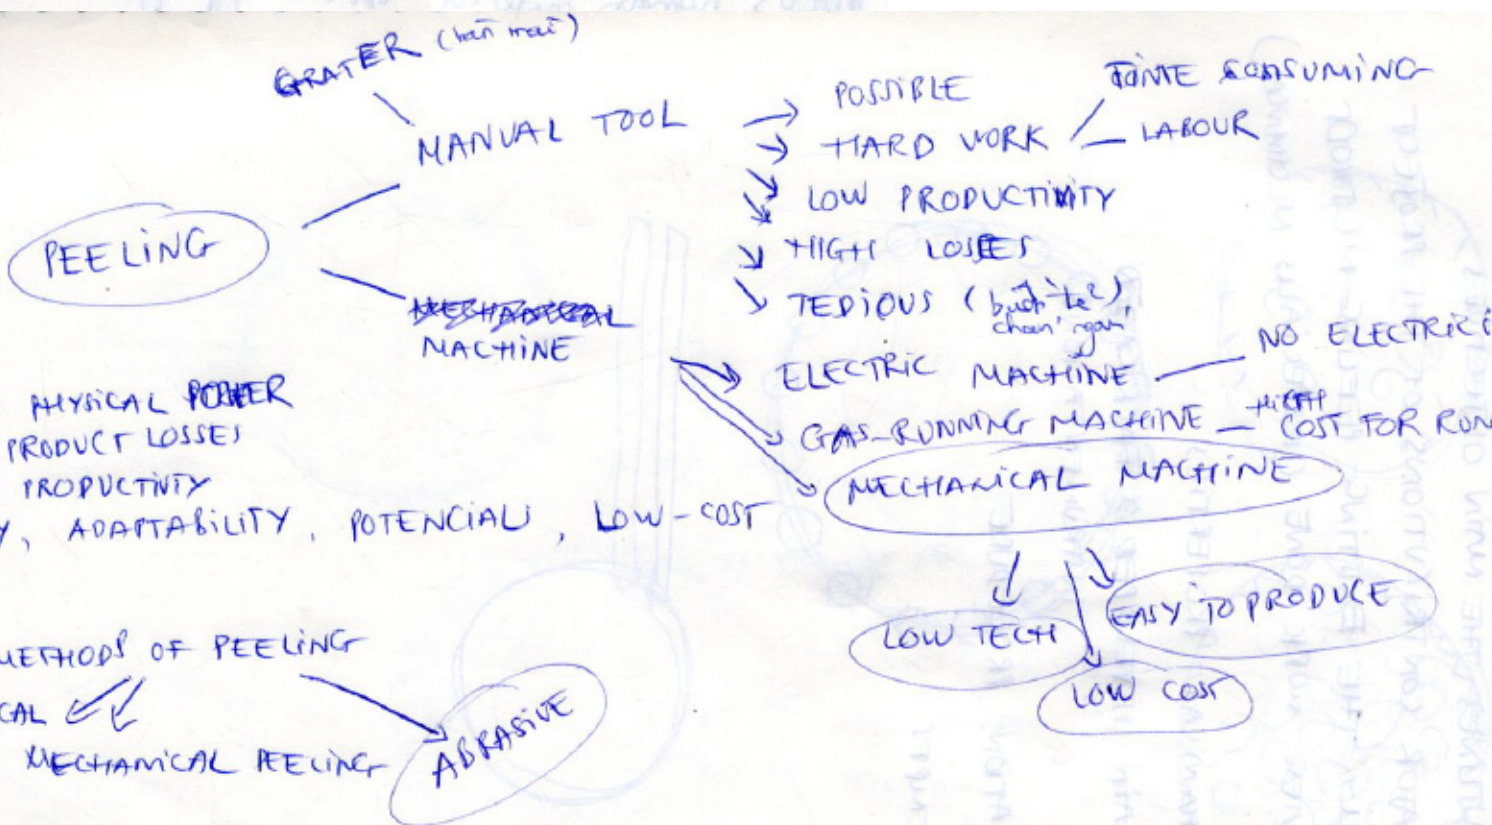 GRATER
MANUAL TOOL
POSSIBLE
HARD WORK
TIME CONSUMING
LABOUR
LOW PRODUCTIVITY
HIGH LOSSES
TEDIOUS
PEELING
MECHANICAL
MACHINE
ELECTRIC MACHINE
NO ELECTRICI
GAS-RUNNING MACHINE
HIGH
COST FOR RUN
MECHANICAL MACHINE
PHYSICAL POWER
PRODUCT LOSSES
PRODUCTIVITY
Y, ADAPTABILITY, POTENCIAL, LOW-COST
LOW TECH
EASY TO PRODUCE
LOW COST
METHODS OF PEELING
CAL
MECHANICAL PEELING
ABRASIVE